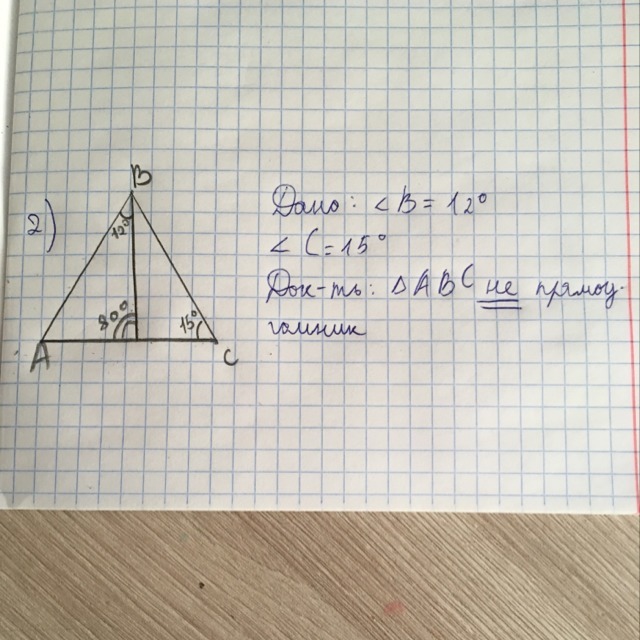 2)
B
12°
90°
15°
A
C
Дано: ∠B = 12°
∠C = 15°
Док-ть: ΔABC не прямоу-
гольник